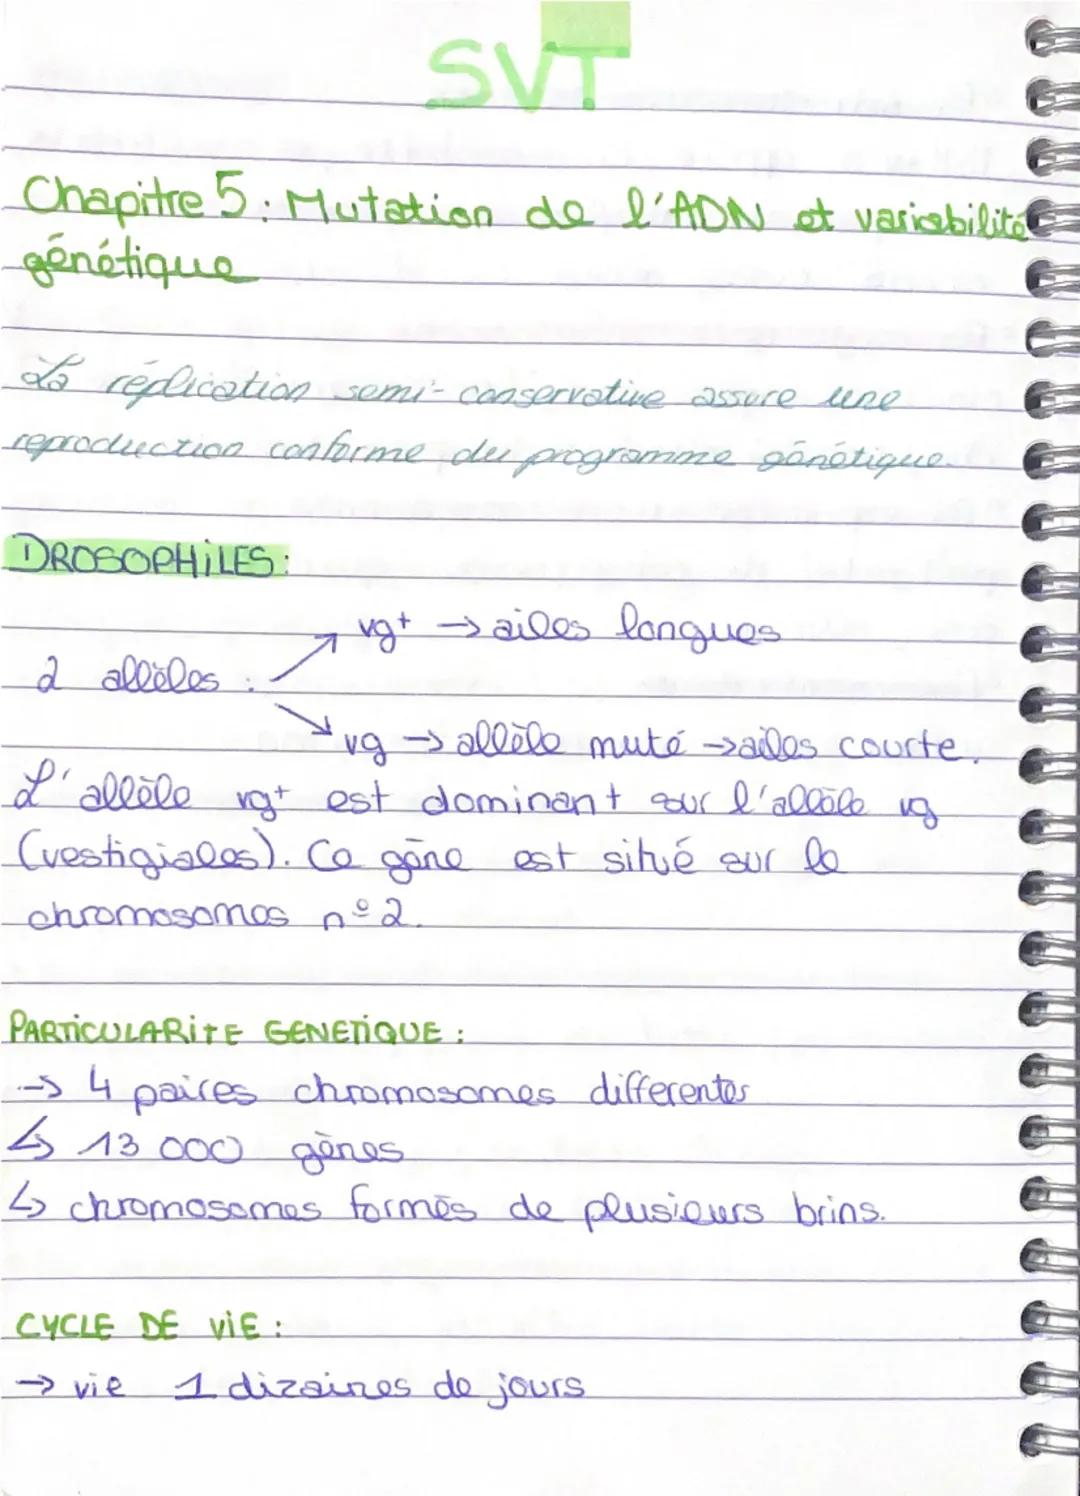 SVT
Chapitre 5 : Mutation de l'ADN et variabilité
génétique
La réplication semi-conservative assure une
reproduction conforme du programme génétique.
DROSOPHiLES :
vg+ → ailes longues
2 allèles :
vg → allèle muté → ailes courte.
L'allèle vg+ est dominant sur l'allèle vg
(vestigiales). Ce gène est situé sur le
chromosomes n° 2.
PARTiCULARiTE GENETiQUE :
→ 4 paires chromosomes differentes
↳ 13 000 gènes
↳ chromosomes formés de plusieurs brins.
CYCLE DE ViE :
→ vie 1 dizaines de jours